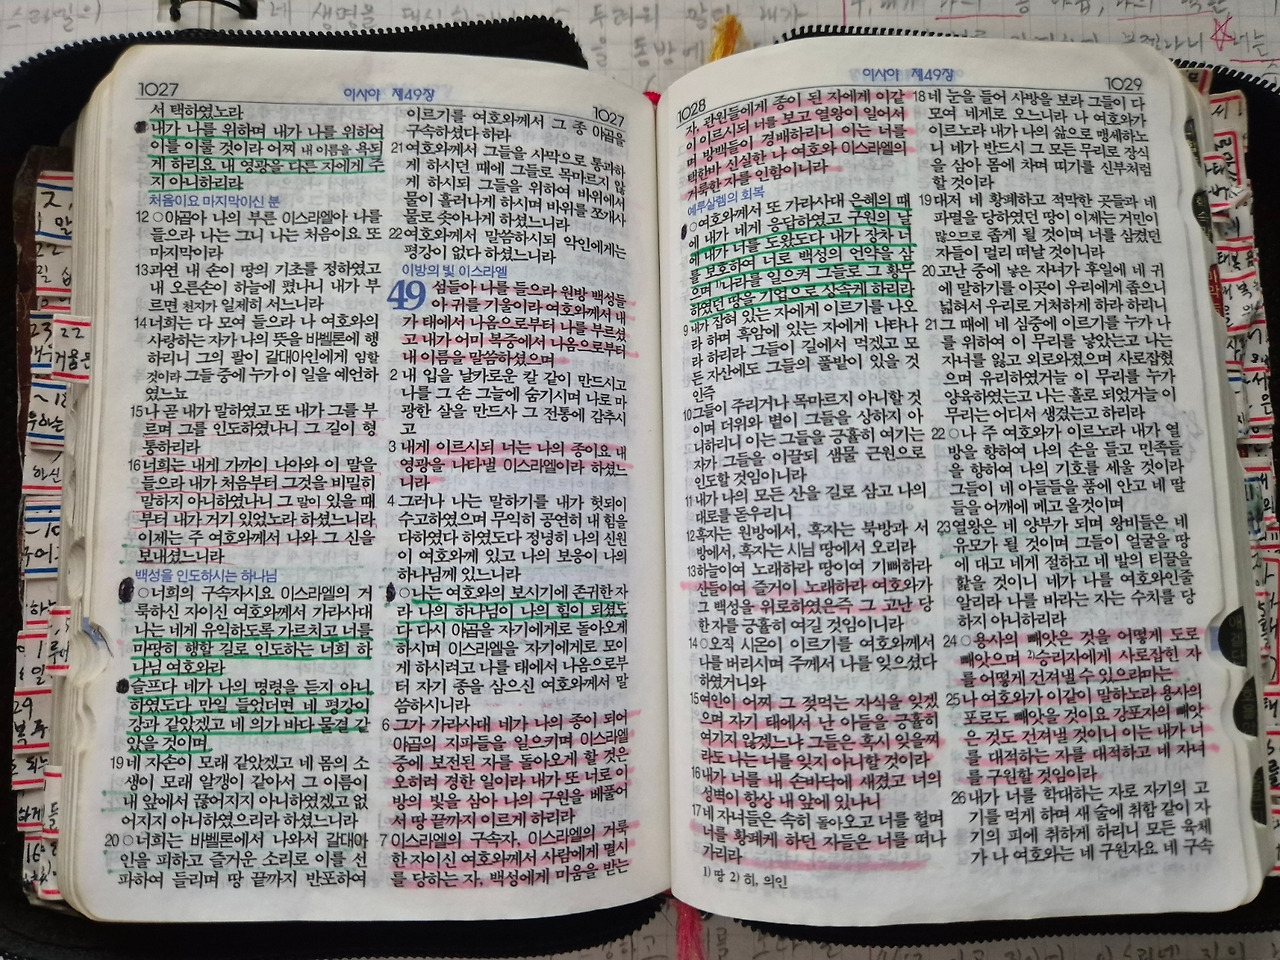 1027
이사야 제49장
1027
서 택하였노라
내가 나를 위하며 내가 나를 위하여
이를 이룰 것이라 어찌 내 이름을 욕되
게 하리요 내 영광을 다른 자에게 주
지 아니하리라
처음이요 마지막이신 분
12 ○야곱아 나의 부른 이스라엘아 나를
들으라 나는 그니 나는 처음이요 또
마지막이라
13 과연 내 손이 땅의 기초를 정하였고
내 오른손이 하늘에 폈나니 내가 부
르면 천지가 일제히 서느니라
14 너희는 다 모여 들으라 나 여호와의
사랑하는 자가 나의 뜻을 바벨론에 행
하리니 그의 팔이 갈대아인에게 임할
것이라 그들 중에 누가 이 일을 예언하
였느뇨
15 나 곧 내가 말하였고 또 내가 그를 부
르며 그를 인도하였나니 그 길이 형
통하리라
16 너희는 내게 가까이 나아와 이 말을
들으라 내가 처음부터 그것을 비밀히
말하지 아니하였나니 그 말이 있을 때
부터 내가 거기 있었노라 하셨느니라
이제는 주 여호와께서 나와 그 신을
보내셨느니라
백성을 인도하시는 하나님
○너희의 구속자시요 이스라엘의 거
룩하신 자이신 여호와께서 가라사대
나는 네게 유익하도록 가르치고 너를
마땅히 행할 길로 인도하는 너희 하
나님 여호와라
슬프다 네가 나의 명령을 듣지 아니
하였도다 만일 들었더면 네 평강이
강과 같았겠고 네 의가 바다 물결 같
았을 것이며
19 네 자손이 모래 같았겠고 네 몸의 소
생이 모래 알갱이 같아서 그 이름이
내 앞에서 끊어지지 아니하였겠고 없
어지지 아니하였으리라 하셨느니라
20 ○너희는 바벨론에서 나와서 갈대아
인을 피하고 즐거운 소리로 이를 선
파하여 들리며 땅 끝까지 반포하여
이르기를 여호와께서 그 종 야곱을
구속하셨다 하라
21 여호와께서 그들을 사막으로 통과하
게 하시던 때에 그들로 목마르지 않
게 하시되 그들을 위하여 바위에서
물이 흘러나게 하시며 바위를 쪼개사
물로 솟아나게 하셨느니라
22 여호와께서 말씀하시되 악인에게는
평강이 없다 하셨느니라
이방의 빛 이스라엘
49 섬들아 나를 들으라 원방 백성들
아 귀를 기울이라 여호와께서 내
가 태에서 나옴으로부터 나를 부르셨
고 내가 어미 복중에서 나옴으로부터
내 이름을 말씀하셨으며
2 내 입을 날카로운 칼 같이 만드시고
나를 그 손 그늘에 숨기시며 나로 마
광한 살을 만드사 그 전통에 감추시
고
3 내게 이르시되 너는 나의 종이요 내
영광을 나타낼 이스라엘이라 하셨느
니라
4 그러나 나는 말하기를 내가 헛되이
수고하였으며 무익히 공연히 내 힘을
다하였다 하였도다 정녕히 나의 신원
이 여호와께 있고 나의 보응이 나의
하나님께 있느니라
○나는 여호와의 보시기에 존귀한 자
라 나의 하나님이 나의 힘이 되셨도
다 다시 야곱을 자기에게로 돌아오게
하시며 이스라엘을 자기에게로 모이
게 하시려고 나를 태에서 나옴으로부
터 자기 종을 삼으신 여호와께서 말
씀하시니라
6 그가 가라사대 네가 나의 종이 되어
야곱의 지파들을 일으키며 이스라엘
중에 보전된 자를 돌아오게 할 것은
오히려 경한 일이라 내가 또 너로 이
방의 빛을 삼아 나의 구원을 베풀어
서 땅 끝까지 이르게 하리라
7 이스라엘의 구속자, 이스라엘의 거룩
한 자이신 여호와께서 사람에게 멸시
를 당하는 자, 백성에게 미움을 받는
1028
이사야 제49장
1029
자, 관원들에게 종이 된 자에게 이같
이 이르시되 너를 보고 열왕이 일어서
며 방백들이 경배하리니 이는 너를
택한바 신실한 나 여호와 이스라엘의
거룩한 자를 인함이니라
예루살렘의 회복
○여호와께서 또 가라사대 은혜의 때
에 내가 네게 응답하였고 구원의 날
에 내가 너를 도왔도다 내가 장차 너
를 보호하여 너로 백성의 언약을 삼
으며 나라를 일으켜 그들로 그 황무
하였던 땅을 기업으로 상속케 하리라
9 내가 잡혀 있는 자에게 이르기를 나오
라 하며 흑암에 있는 자에게 나타나
라 하리라 그들이 길에서 먹겠고 모
든 자산에도 그들의 풀밭이 있을 것
인즉
10 그들이 주리거나 목마르지 아니할 것
이며 더위와 볕이 그들을 상하지 아
니하리니 이는 그들을 긍휼히 여기는
자가 그들을 이끌되 샘물 근원으로
인도할 것임이니라
11 내가 나의 모든 산을 길로 삼고 나의
대로를 돋우리니
12 혹자는 원방에서, 혹자는 북방과 서
방에서, 혹자는 시님 땅에서 오리라
13 하늘이여 노래하라 땅이여 기뻐하라
산들이여 즐거이 노래하라 여호와가
그 백성을 위로하였은즉 그 고난 당
한 자를 긍휼히 여길 것임이니라
14 ○오직 시온이 이르기를 여호와께서
나를 버리시며 주께서 나를 잊으셨다
하였거니와
15 여인이 어찌 그 젖먹는 자식을 잊겠
으며 자기 태에서 난 아들을 긍휼히
여기지 않겠느냐 그들은 혹시 잊을찌
라도 나는 너를 잊지 아니할 것이라
16 내가 너를 내 손바닥에 새겼고 너의
성벽이 항상 내 앞에 있나니
17 네 자녀들은 속히 돌아오고 너를 헐며
너를 황폐케 하던 자들은 너를 떠나
가리라
1) 땅 2) 히, 의인
18 네 눈을 들어 사방을 보라 그들이 다
모여 네게로 오느니라 나 여호와가
이르노라 내가 나의 삶으로 맹세하노
니 네가 반드시 그 모든 무리로 장식
을 삼아 몸에 차며 띠기를 신부처럼
할 것이라
19 대저 네 황폐하고 적막한 곳들과 네
파멸을 당하였던 땅이 이제는 거민이
많으므로 좁게 될 것이며 너를 삼켰던
자들이 멀리 떠날 것이니라
20 고난 중에 낳은 자녀가 후일에 네 귀
에 말하기를 이곳이 우리에게 좁으니
넓혀서 우리로 거처하게 하라 하리니
21 그 때에 네 심중에 이르기를 누가 나
를 위하여 이 무리를 낳았는고 나는
자녀를 잃고 외로와졌으며 사로잡혔
으며 유리하였거늘 이 무리를 누가
양육하였는고 나는 홀로 되었거늘 이
무리는 어디서 생겼는고 하리라
22 ○나 주 여호와가 이르노라 내가 열
방을 향하여 나의 손을 들고 민족들
을 향하여 나의 기호를 세울 것이라
그들이 네 아들들을 품에 안고 네 딸
들을 어깨에 메고 올것이며
23 열왕은 네 양부가 되며 왕비들은 네
유모가 될 것이며 그들이 얼굴을 땅
에 대고 네게 절하고 네 발의 티끌을
핥을 것이니 네가 나를 여호와인줄
알리라 나를 바라는 자는 수치를 당
하지 아니하리라
24 ○용사의 빼앗은 것을 어떻게 도로
빼앗으며 2)승리자에게 사로잡힌 자
를 어떻게 건져낼 수 있으랴마는
25 나 여호와가 이같이 말하노라 용사의
포로도 빼앗을 것이요 강포자의 빼앗
은 것도 건져낼 것이니 이는 내가 너
를 대적하는 자를 대적하고 네 자녀
를 구원할 것임이라
26 내가 너를 학대하는 자로 자기의 고
기를 먹게 하며 새 술에 취함 같이 자
기의 피에 취하게 하리니 모든 육체
가 나 여호와는 네 구원자요 네 구속